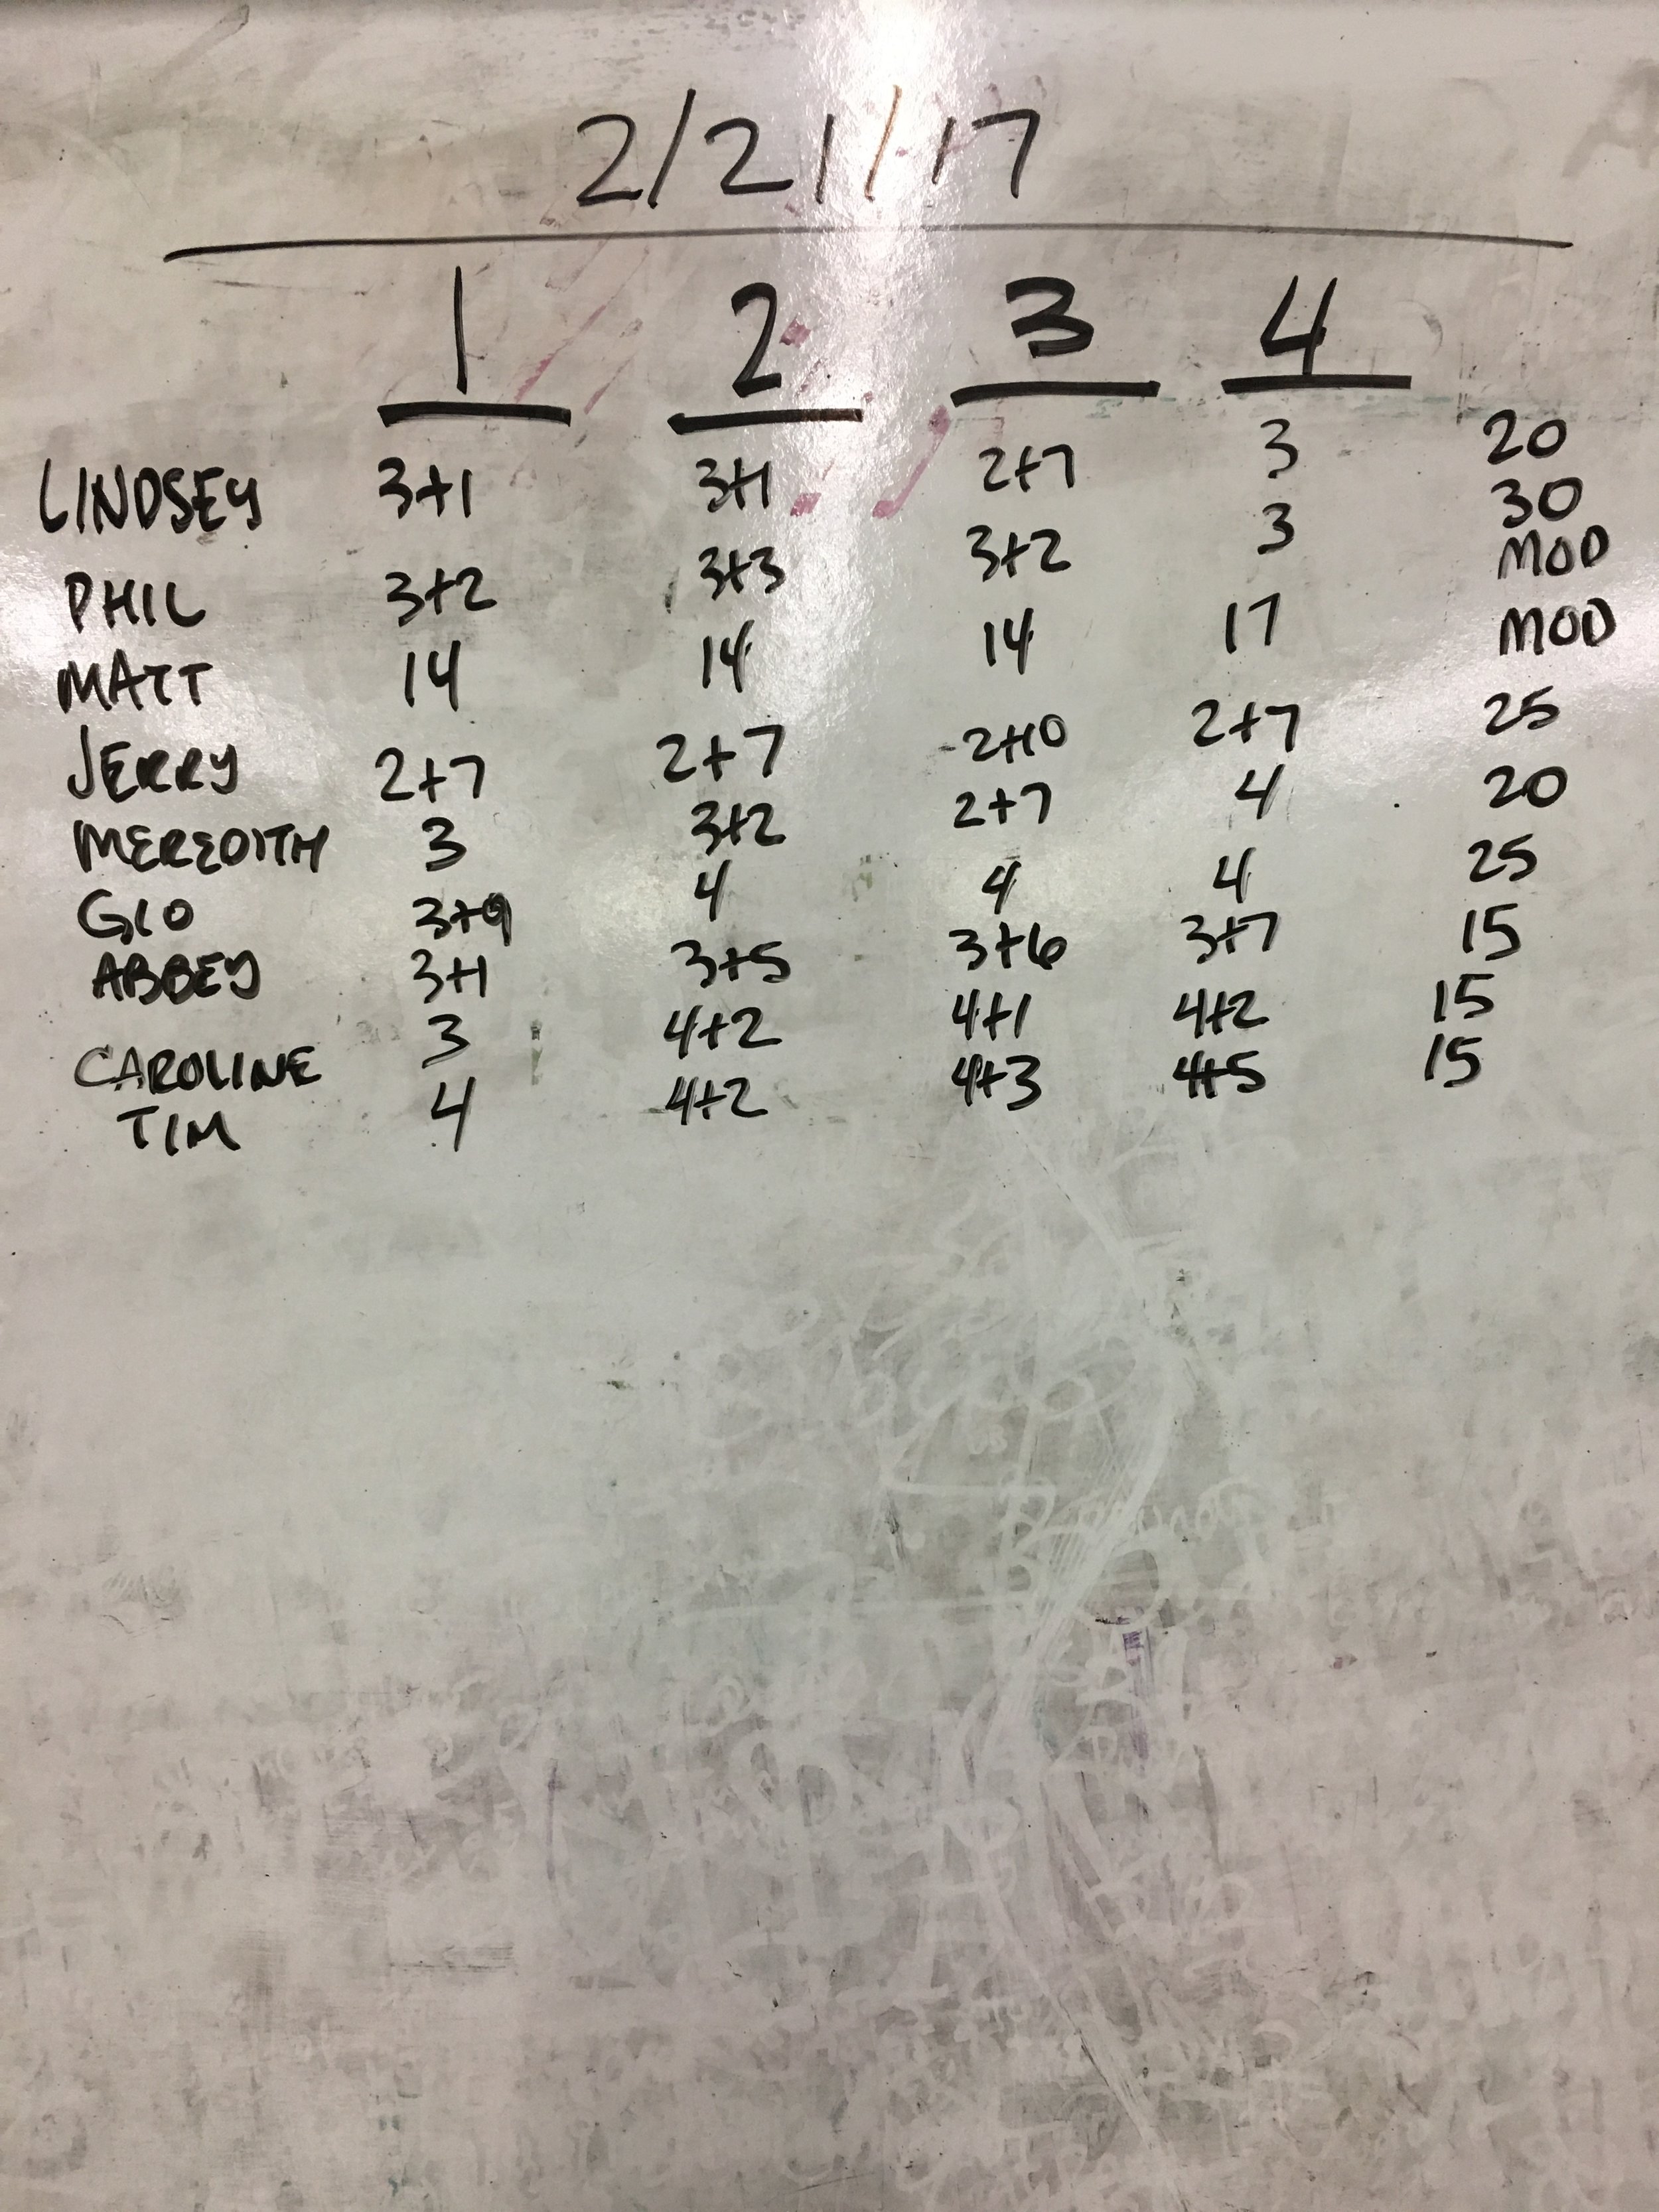 2/21/17
1 2 3 4
LINDSEY 3+1 3+1 2+7 3 20
PHIL 3+2 3+3 3+2 3 30
MOD
MATT 14 14 14 17 MOD
JERRY 2+7 2+7 2+10 2+7 25
MEREDITH 3 3+2 2+7 4 20
GIO 3+9 4 4 4 25
ABBEY 3+1 3+5 3+6 3+7 15
CAROLINE 3 4+2 4+1 4+2 15
TIM 4 4+2 4+3 4+5 15